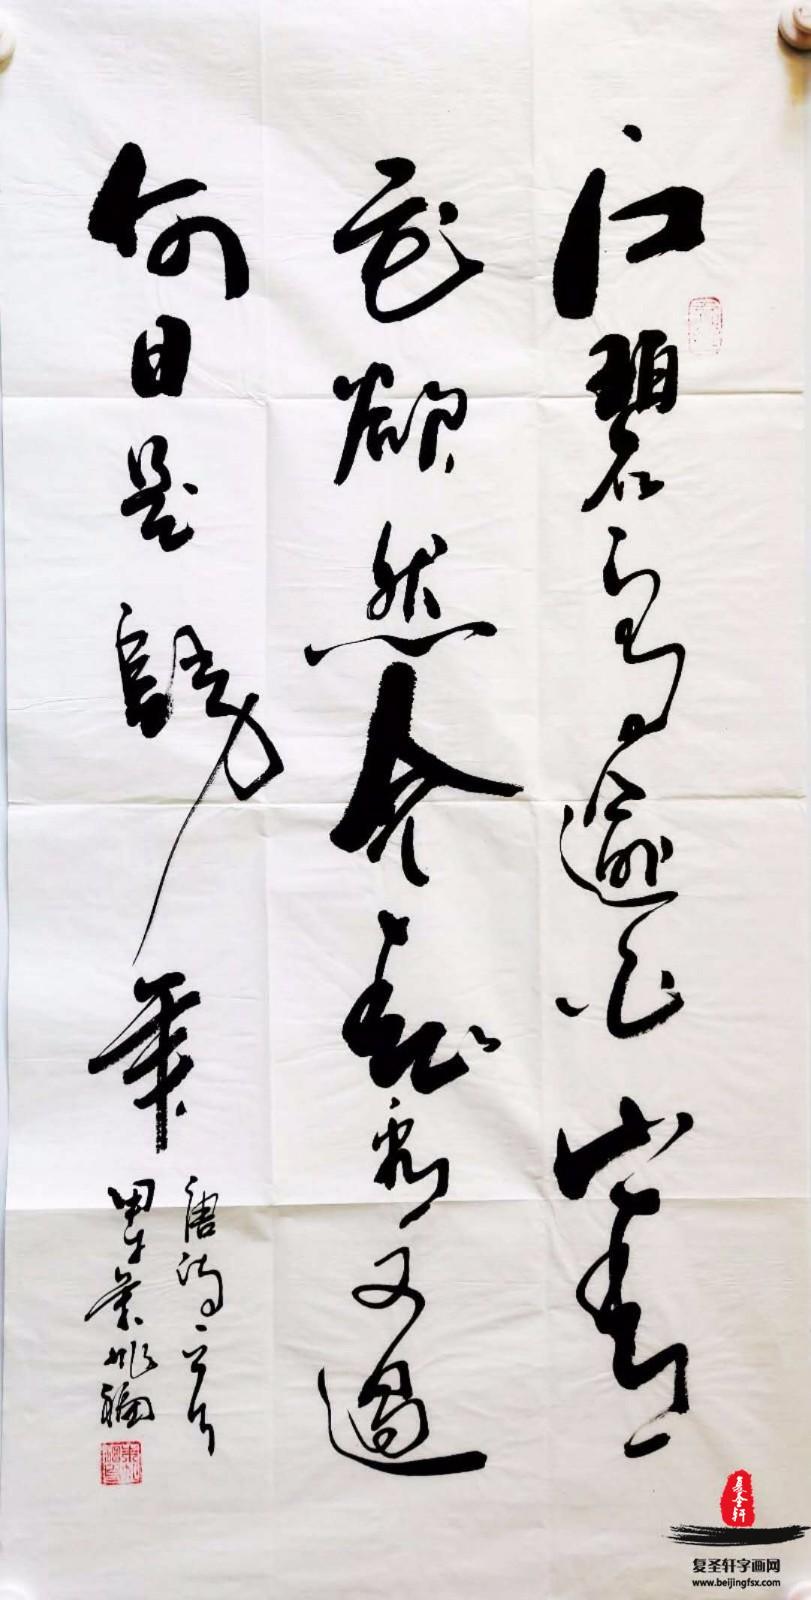 江碧鳥逾白山青
花欲然今春看又過
何日是歸年
唐詩一首
甲午
复圣轩
复圣轩字画网
www.beijingfsx.com